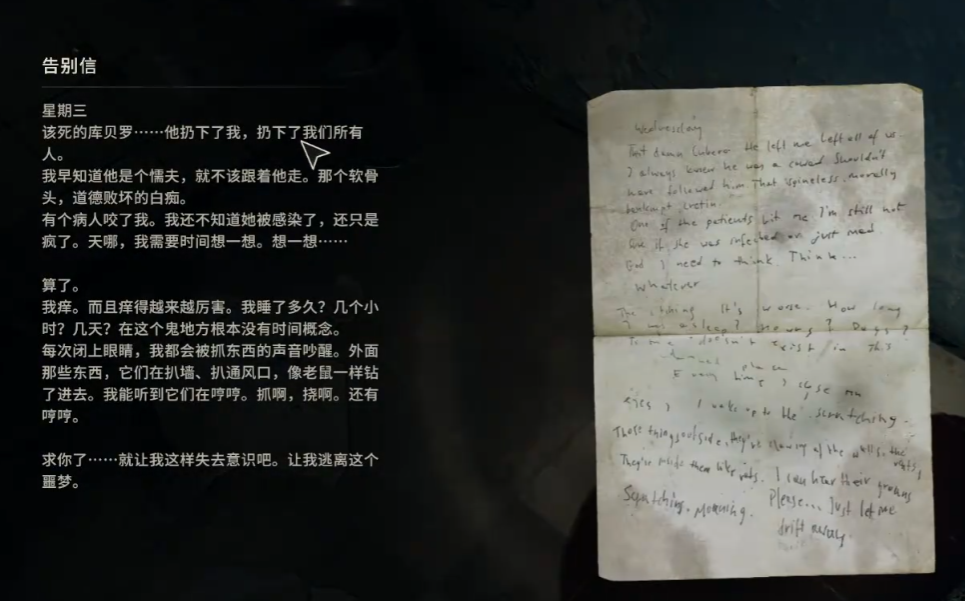 告别信
星期三
该死的库贝罗……他扔下了我，扔下了我们所有
人。
我早知道他是个懦夫，就不该跟着他走。那个软骨
头，道德败坏的白痴。
有个病人咬了我。我还不知道她被感染了，还只是
疯了。天哪，我需要时间想一想。想一想……
算了。
我痒。而且痒得越来越厉害。我睡了多久？几个小
时？几天？在这个鬼地方根本没有时间概念。
每次闭上眼睛，我都会被抓东西的声音吵醒。外面
那些东西，它们在扒墙、扒通风口，像老鼠一样钻
了进去。我能听到它们在哼哼。抓啊，挠啊。还有
哼哼。
求你了……就让我这样失去意识吧。让我逃离这个
噩梦。
Wednesday
That damn Lubero He left me Left all of us
I always knew he was a coward Shouldn't
have followed him That spineless, morally
bankrupt cretin
One of the patients bit me I'm still not
if she was infected or just mad.
God I need to think. Think...
Whatever
The itching It's worse. How long
I was asleep? Hours? Days?
Time doesn't exist in this
place
Every time I close my
eyes, I wake up to the scratching.
Those things outside, they're clawing at the walls, the
vents,
They're inside them like rats. I can hear their groans
Scratching. Moaning. Please... Just let me
drift away.